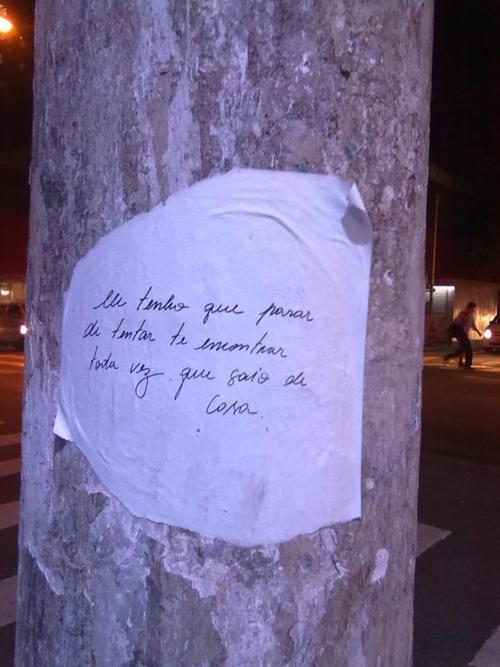 Eu tenho que parar
de tentar te encontrar
toda vez que saio de
casa.